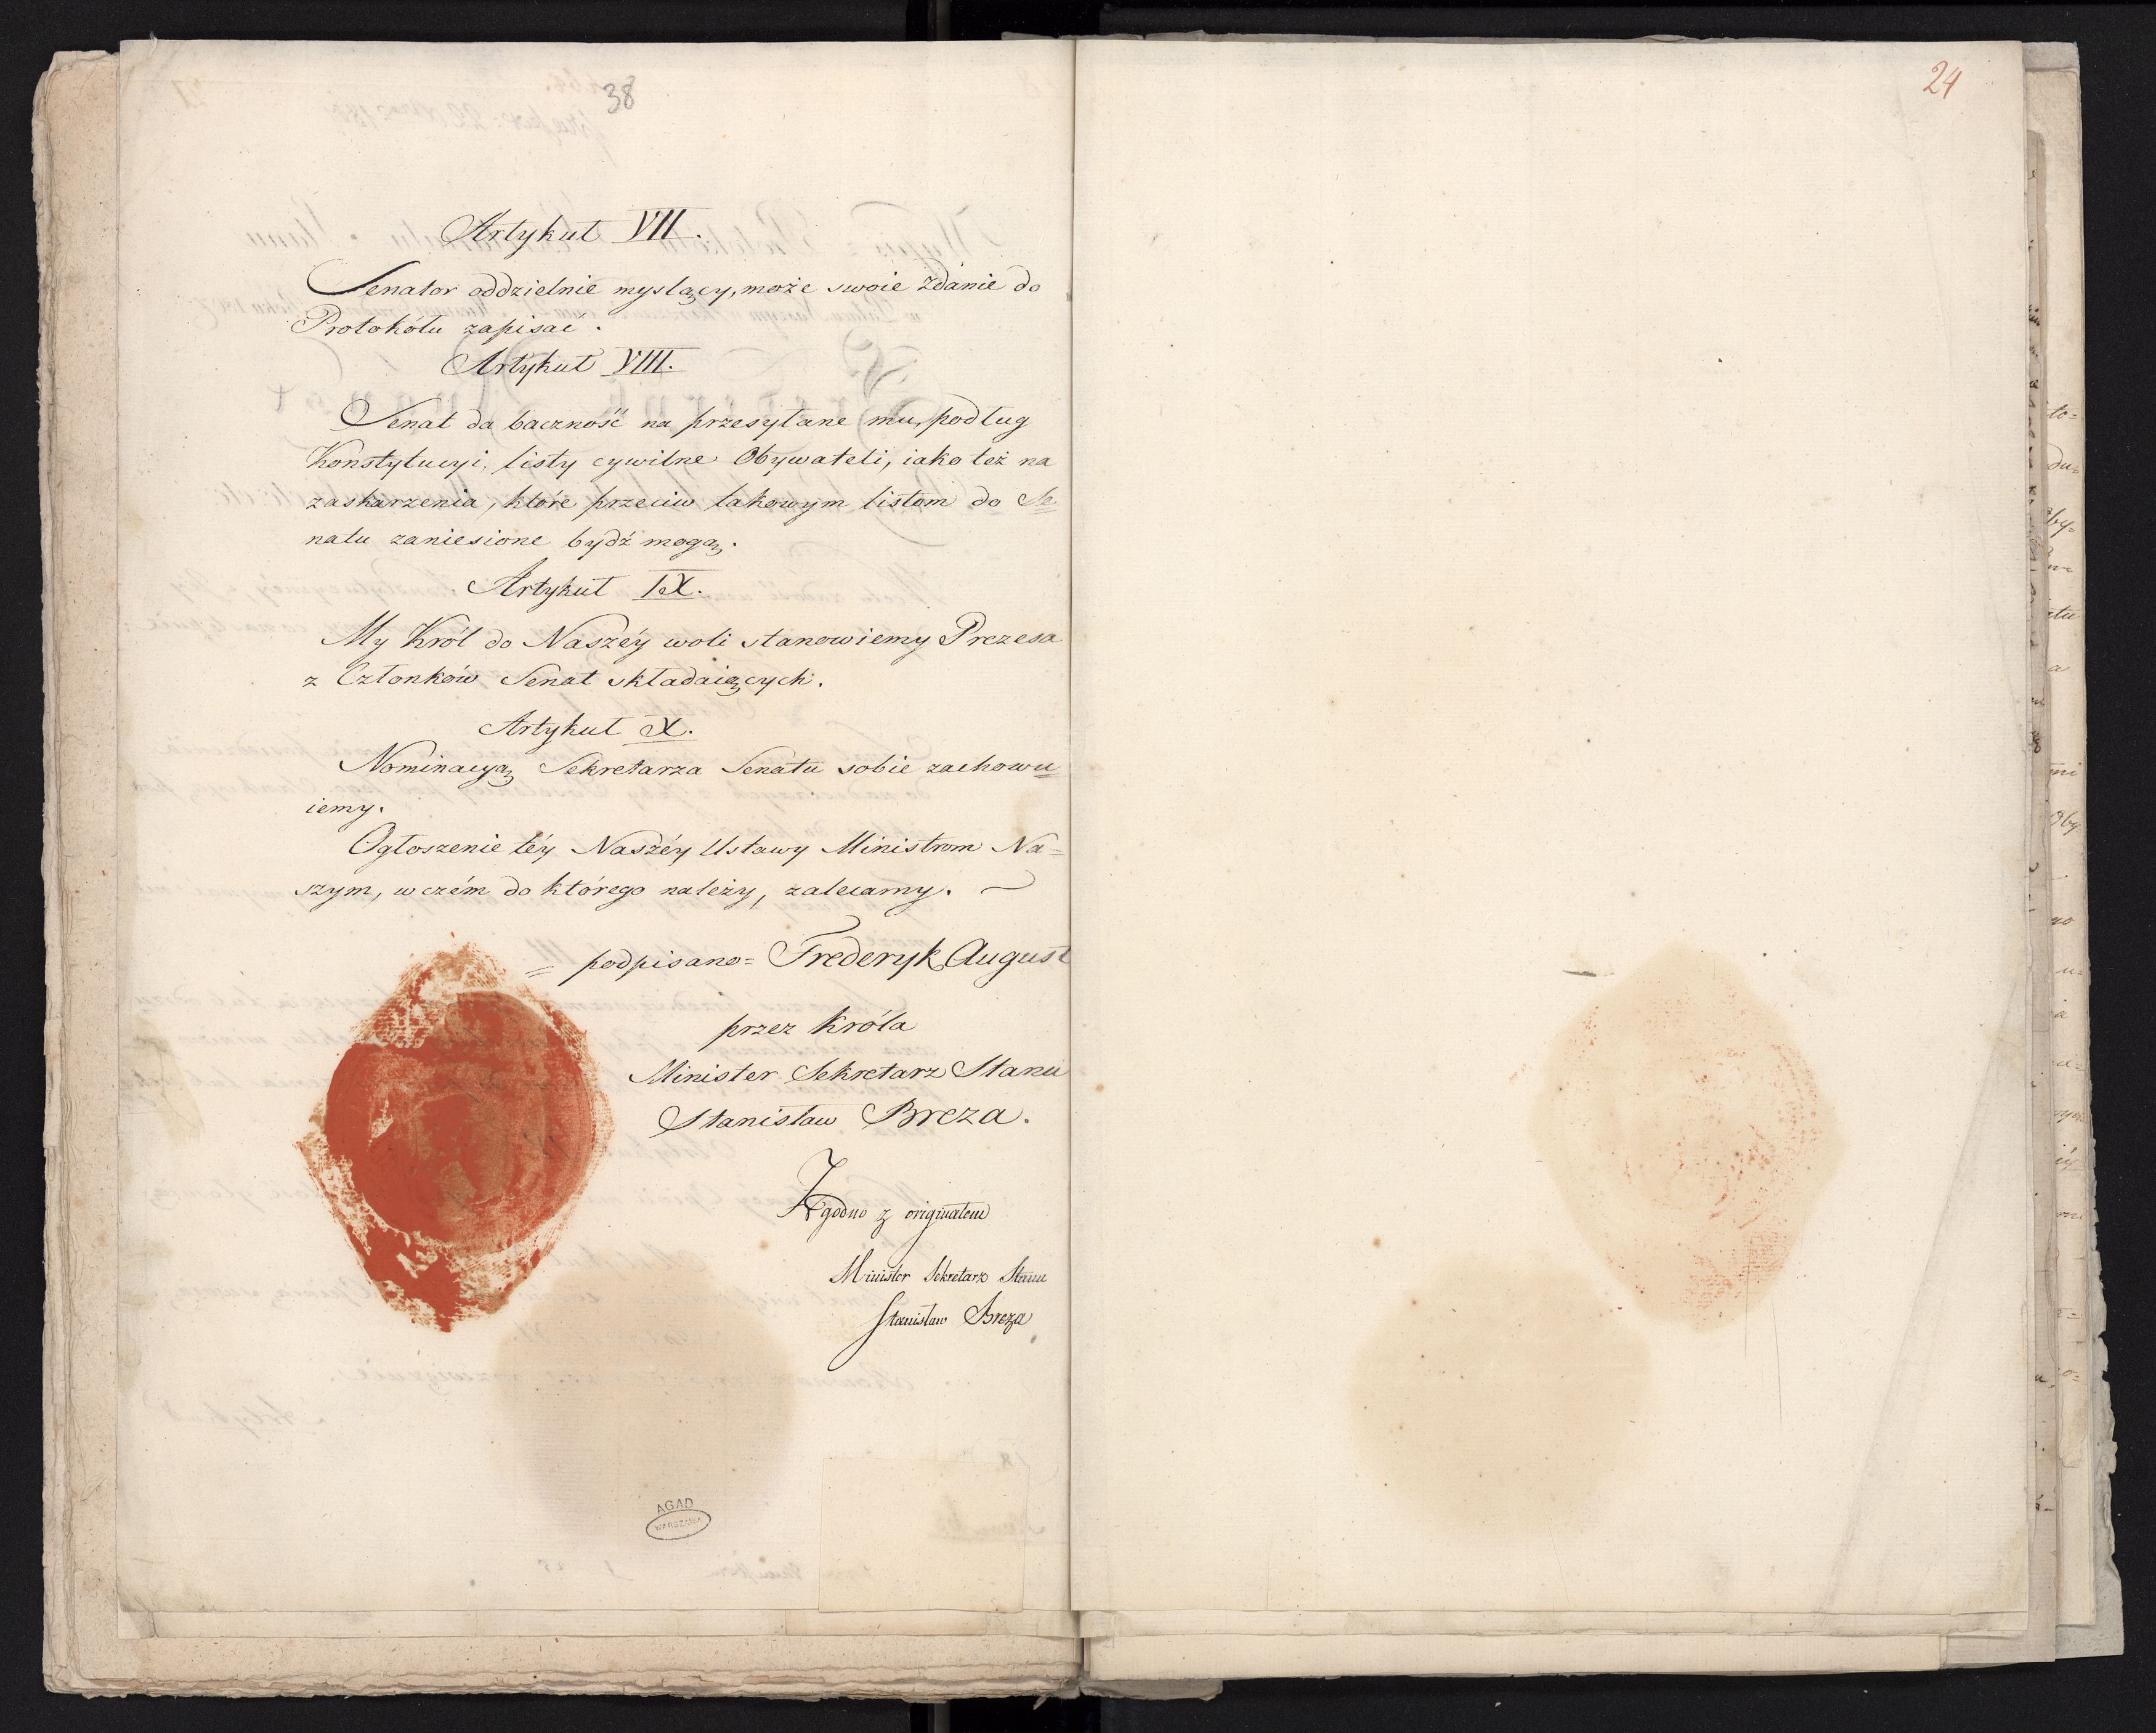 38
Artykuł VII.
Senator oddzielnie myslący, może swoie zdanie do
Protokółu zapisać.
Artykuł VIII.
Senat da baczność na przesyłane mu, podług
Konstytucyi, listy cywilne Obywateli, iako też na
zaskarzenia, które przeciw takowym listom do Se=
natu zaniesione bydź mogą.
Artykuł IX.
My Król do Naszéy woli stanowiemy Prezesa
z Członków Senat składaiących.
Artykuł X.
Nominacyą Sekretarza Senatu sobie zachowu=
iemy.
Ogłoszenie téy Naszéy Ustawy Ministrom Na=
szym, w czém do którego należy, zalecamy.
= podpisano = Frederyk August
przez Króla
Minister Sekretarz Stanu
Stanisław Breza.
Zgodno z originałem
Minister Sekretarz Stanu
Stanisław Breza
AGAD
WARSZAWA
24